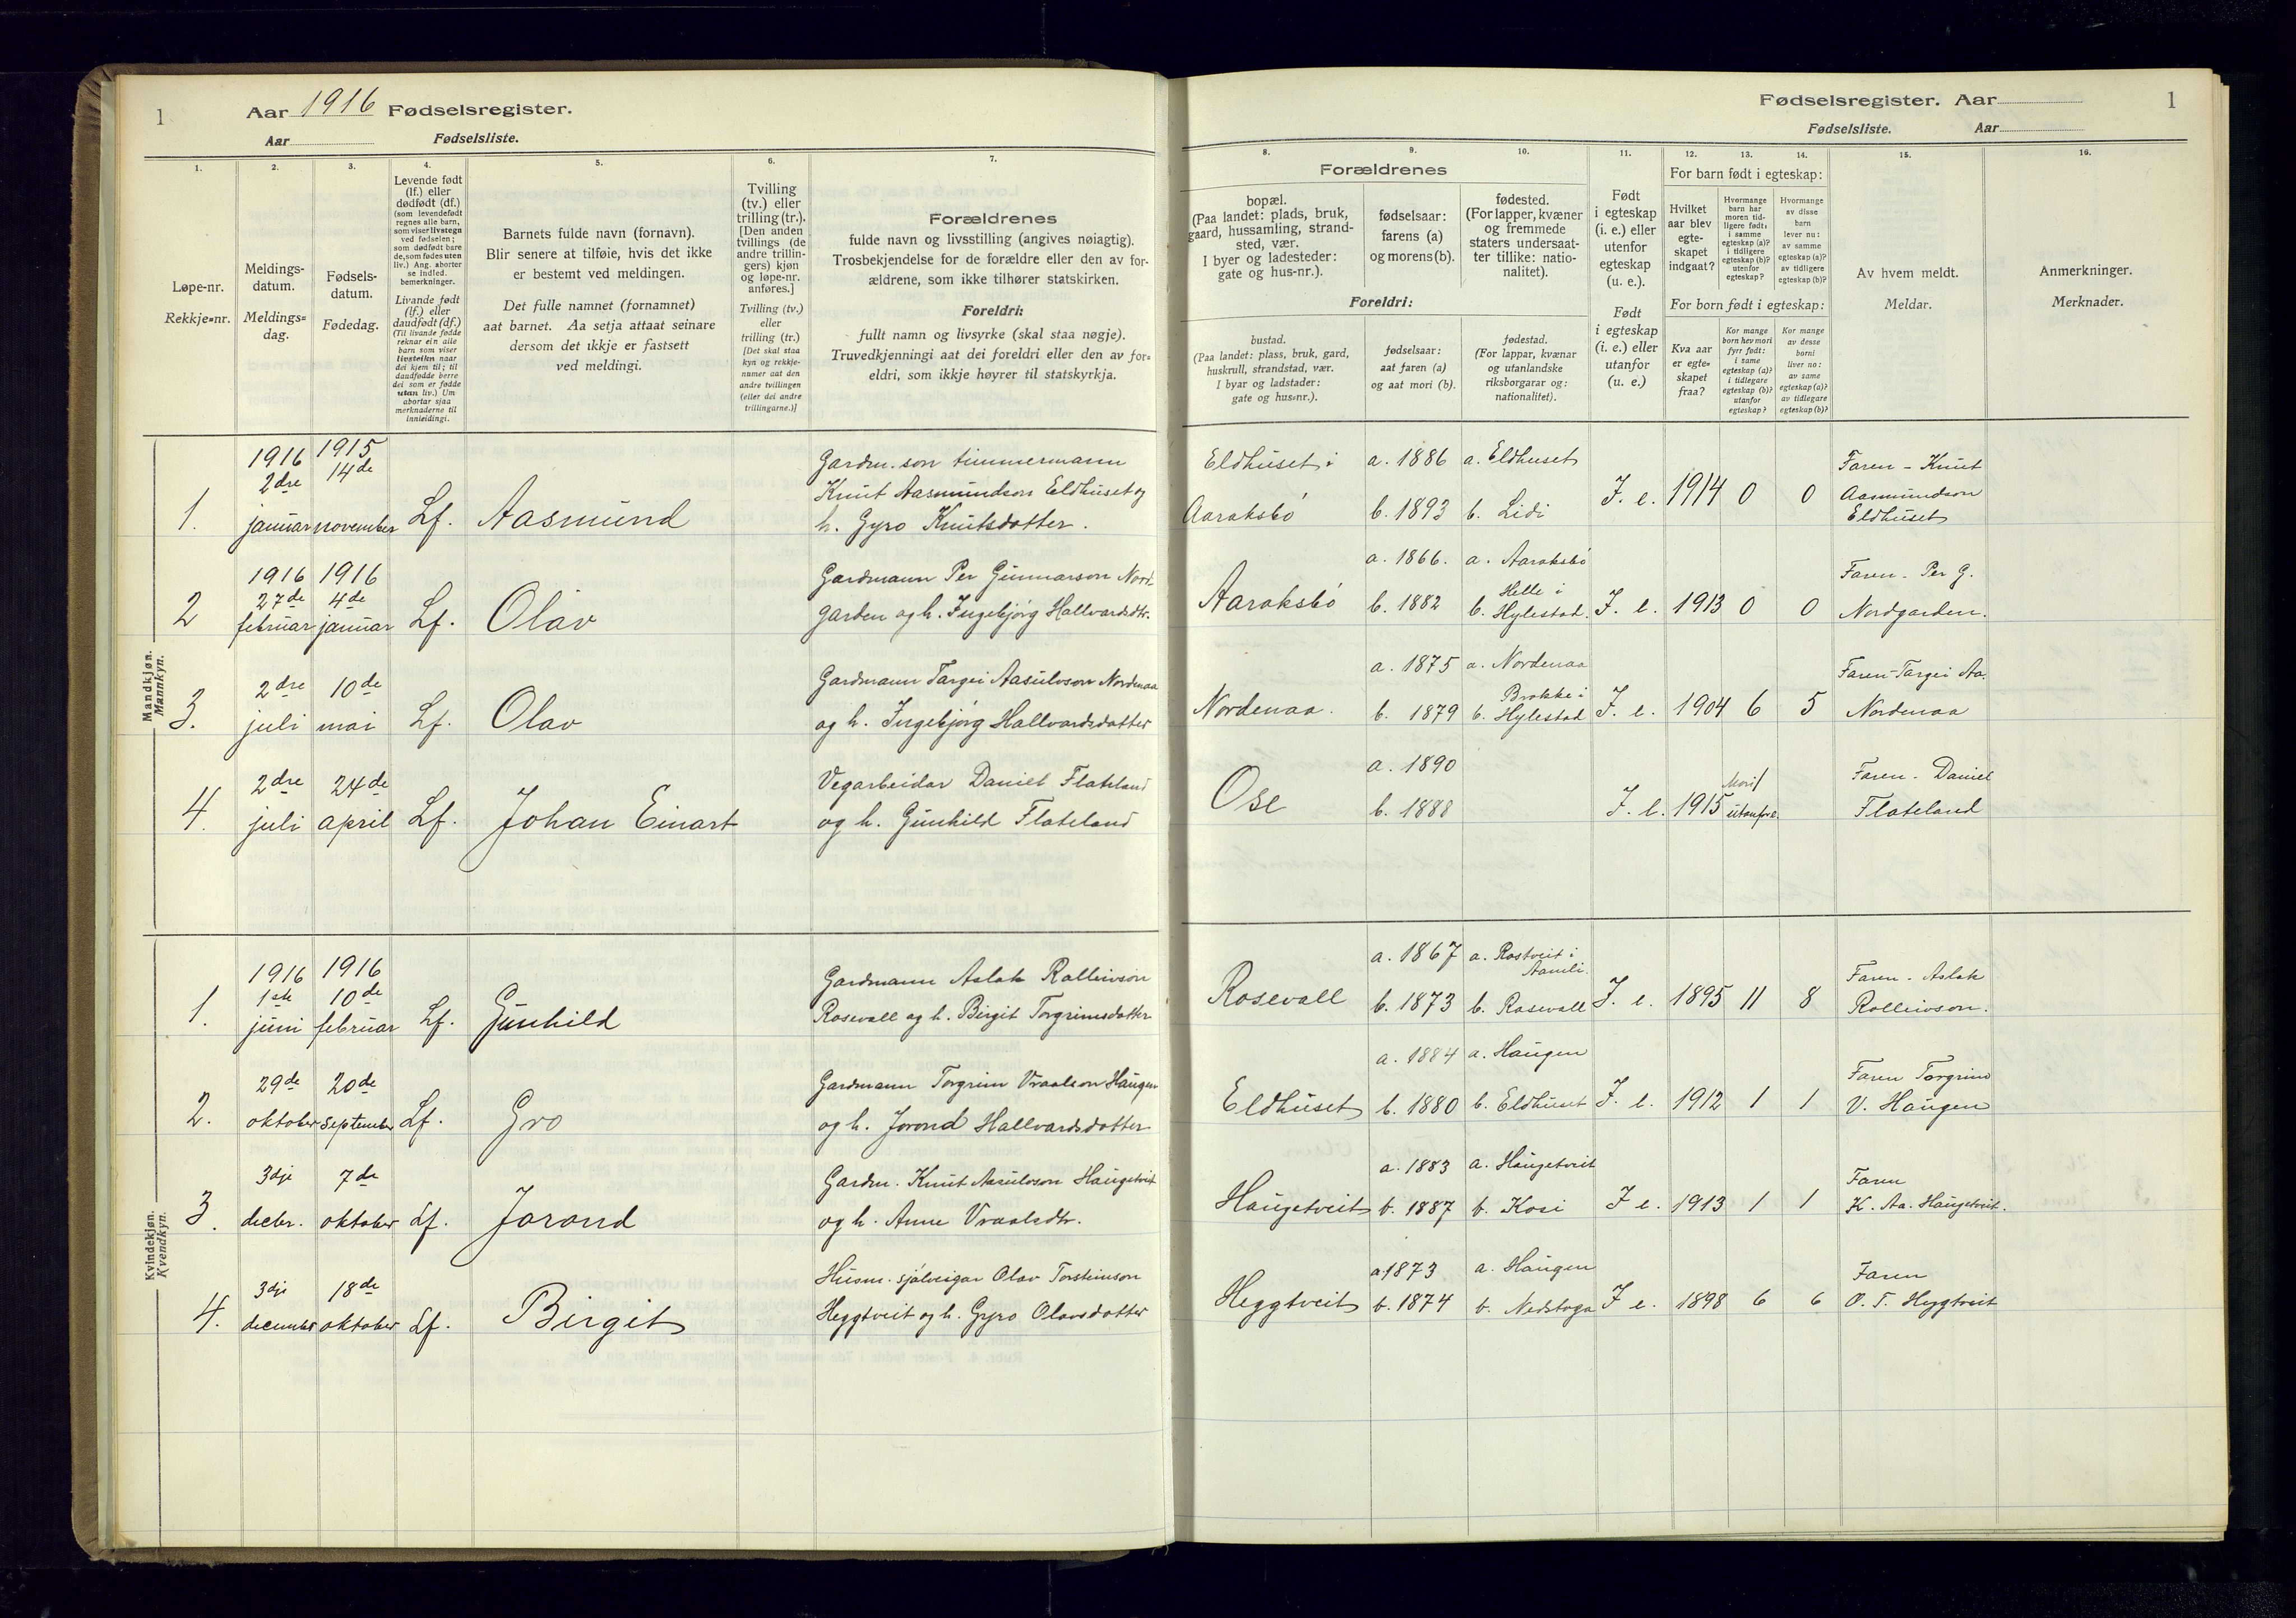 1
Aar 1916 Fødselsregister.
Aar Fødselsliste.
1.
2.
3.
4.
5.
6.
7.
Løpe-nr.
Rekkje=nr.
Meldings-
datum.
Meldings=
dag.
Fødsels-
datum.
Fødedag.
Levende født
(lf.) eller
dødfødt (df.)
(som levendefødt
regnes alle barn,
som viser livstegn
ved fødselen;
som dødfødt bare
de, som fødes uten
liv.) Ang. aborter
se indled.
bemerkninger.
Livande født
(lf.) eller
daudfødt (df.)
(Til livande fødde
reknar ein alle
barn som viser
livsteikn naar
dei kjem til; til
daudfødde berre
dei som er fødde
utan liv.) Um
abortar sjaa
merknaderne til
innleidingi.
Barnets fulde navn (fornavn).
Blir senere at tilføie, hvis det ikke
er bestemt ved meldingen.
Det fulle namnet (fornamnet)
aat barnet. Aa setja attaat seinare
dersom det ikkje er fastsett
ved meldingi.
Tvilling
(tv.) eller
trilling (tr.).
[Den anden
tvillings (de
andre trillin-
gers) kjøn
og løpe-nr.
anføres.]
Tvilling (tv.)
eller
trilling (tr.)
[Det skal staa
kyn og rekkje-
numer aat den
andre tvillingen
(eller dei andre
trillingarne.)]
Forældrenes
fulde navn og livsstilling (angives nøiagtig).
Trosbekjendelse for de forældre eller den av for-
ældrene, som ikke tilhører statskirken.
Foreldri:
fullt namn og livsyrke (skal staa nøgje).
Truvedkjenningi aat dei foreldri eller den av for=
eldri, som ikkje høyrer til statskyrkja.
Mandkjøn.
Mannkyn.
1916 1915
2dre 14de
1. januar november Lf. Aasmund
Gardm. son timmermann
Knut Aasmundson Eldhuset og
h. Gyro Knutsdotter.
1916 1916
27de 4de
2 februar januar Lf. Olav
Gardmann Per Gunnarson Nord
garden og h. Ingebjörg Hallvardsdtr.
2dre 10de
3. juli mai Lf. Olav
Gardmann Targei Aasulvson Nordenaa
og h. Ingebjörg Hallvardsdotter
2dre 24de
4. juli april Lf. Johan Einart
Vegarbeidar Daniel Flateland
og h. Gunhild Flateland
Kvindekjøn.
Kvendkyn.
1916 1916
1ste 10de
1. juni februar Lf. Gunhild
Gardmann Aslak Rolleivson
Rosevall og h. Birgit Torgrimsdotter
29de 20de
2. oktober september Lf. Gro
Gardmann Torgrim Vraalson Haugen
og h. Jorond Hallvardsdotter
3dje 7de
3. decbr. oktober Lf. Jorond
Gardm. Knut Aasulvson Haugetveit
og h. Anne Vraalsdtr.
3dje 18de
4. december oktober Lf. Birgit
Husm. sjølveigar Olav Torsteinson
Heggtveit og h. Gyro Olavsdotter
Fødselsregister. Aar 1
Fødselsliste. Aar
8.
9.
10.
11.
12.
13.
14.
15.
16.
Forældrenes
bopæl.
(Paa landet: plads, bruk,
gaard, hussamling, strand-
sted, vær.
I byer og ladesteder:
gate og hus-nr.).
fødselsaar:
farens (a)
og morens (b).
fødested.
(For lapper, kvæner
og fremmede
staters undersaat-
ter tillike: natio-
nalitet).
Foreldri:
bustad.
(Paa landet: plass, bruk, gard,
huskrull, strandstad, vær.
I byar og ladstader:
gate og hus=nr.).
fødselsaar:
aat faren (a)
og aat mori (b).
fødestad.
(For lappar, kvænar
og utanlandske
riksborgarar og:
nationalitet).
Født
i egteskap
(i. e.) eller
utenfor
egteskap
(u. e.).
Født
i egteskap
(i. e.) eller
utanfor
(u. e.)
For barn født i egteskap:
Hvilket
aar blev
egte-
skapet
indgaat?
Hvormange
barn har
moren tid-
ligere født:
i samme
egteskap (a)?
i tidligere
egteskap (b)?
utenfor
egteskap?
Hvormange
av disse
barn
lever nu:
av samme
egteskap (a)?
av tidligere
egteskap (b)?
For born født i egteskap:
Kva aar
er egte=
skapet
fraa?
Kor mange
born hev mori
fyrr født:
i same
egteskap (a)?
i tidlegare
egteskap (b)?
utanfor
egteskap?
Kor mange
av desse
borni
liver no:
av same
egteskap (a)?
av tidlegare
egteskap (b)?
Av hvem meldt.
Meldar.
Anmerkninger.
Merknader.
Eldhuset i a. 1886 a. Eldhuset Faren - Knut
Aaraksbö b. 1893 b. Lidi I. e. 1914 0 0 Aasmundson
Eldhuset
a. 1866. a. Aaraksbö Faren - Per G.
Helle i
Aaraksbö b. 1882 b. Hylestad. I. e. 1913 0 0 Nordgarden.
a. 1875 a. Nordenaa Faren - Targei Aa.
Brokke i
Nordenaa. b. 1879 b. Hylestad I. e. 1904 6 5 Nordenaa
a. 1890 Faren - Daniel
Mori
Ose b. 1888 I. e. 1915 utanfor e. Flateland
a. 1867 a. Rostveit i
Aamli. Faren - Aslak
Rosevall b. 1873 b. Rosevall I. e. 1895 11 8 Rolleivson.
a. 1884 a. Haugen Faren Torgrim
Eldhuset b. 1880 b. Eldhuset I. e. 1912 1 1 V. Haugen
a. 1883 a. Haugetveit Faren
Haugetveit b. 1887 b. Kosi I e. 1913 1 1 K. Aa. Haugetveit.
a. 1873 a. Haugen Faren
Heggtveit b. 1874 b. Nedstoga I e. 1898 6 6 O. T. Heggtveit